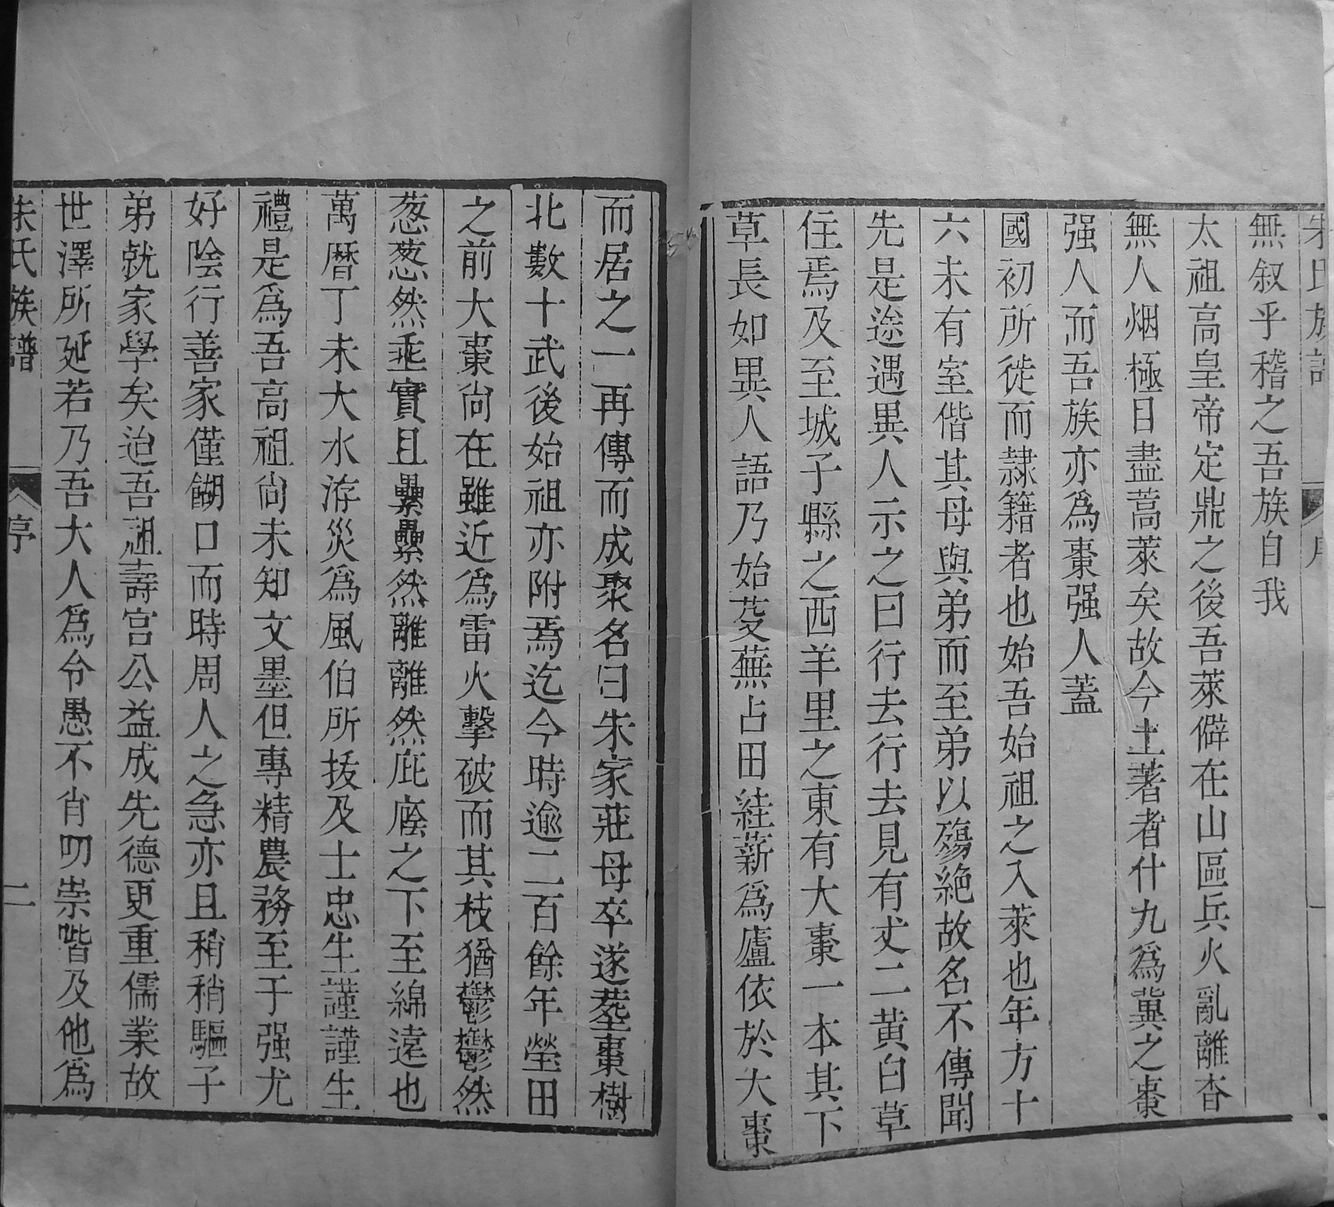 朱氏族譜 序 一
無叙乎稽之吾族自我
太祖高皇帝定鼎之後吾萊僻在山區兵火亂離杳
無人烟極目盡蒿萊矣故今土著者什九爲冀之棗
强人而吾族亦爲棗强人蓋
國初所徙而隷籍者也始吾始祖之入萊也年方十
六未有室偕其母與弟而至弟以殤絶故名不傳聞
先是途遇異人示之曰行去行去見有丈二黄白草
住焉及至城子縣之西羊里之東有大棗一本其下
草長如異人語乃始芟蕪占田絓薪爲廬依於大棗
而居之一再傳而成聚名曰朱家莊母卒遂塟棗樹
北數十武後始祖亦附焉迄今時逾二百餘年塋田
之前大棗尙在雖近爲雷火擊破而其枝猶鬱鬱然
葱葱然乖實且纍纍然離離然庇廕之下至綿遠也
萬曆丁未大水洊災爲風伯所拔及士忠生謹謹生
禮是爲吾高祖尙未知文墨但專精農務至于强尤
好陰行善家僅餬口而時周人之急亦且稍稍驅子
弟就家學矣迨吾祖壽宫公益成先德更重儒業故
世澤所延若乃吾大人爲令愚不肖叨崇階及他爲
朱氏族譜 序 二